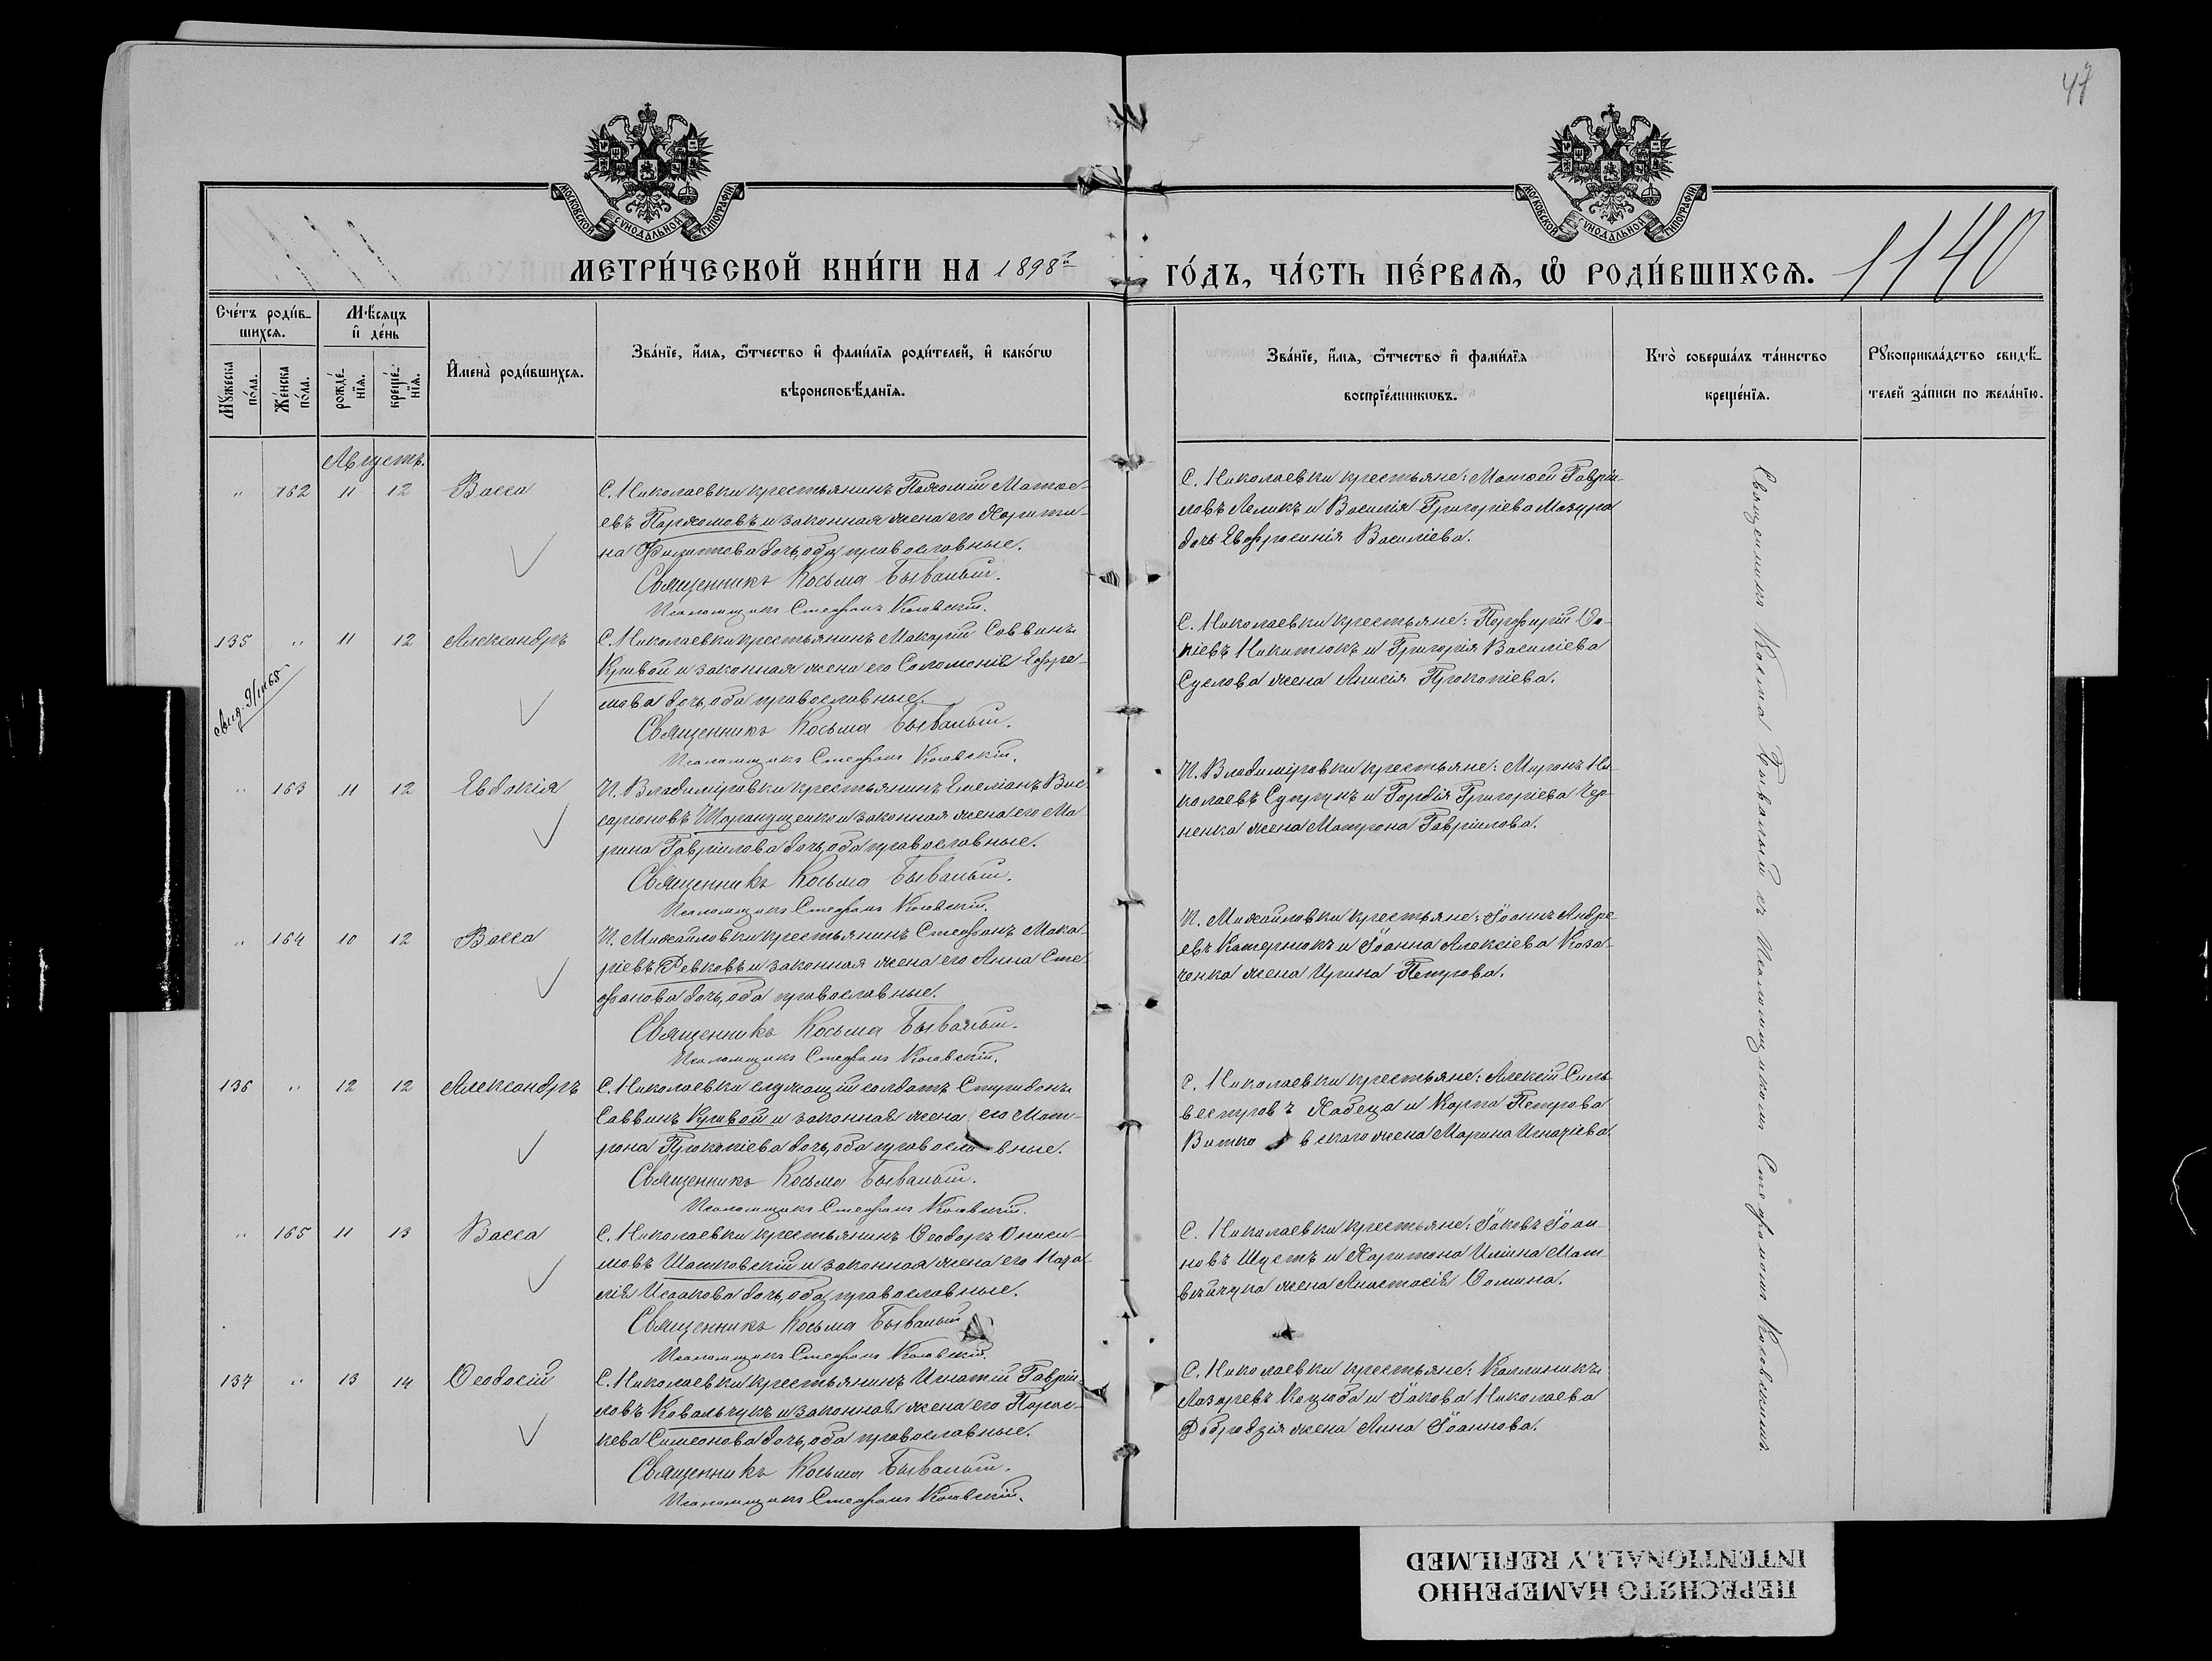 47
МОСКОВСКОЙ СѴНОДАЛЬНОЙ ТИПОГРАФІИ
МОСКОВСКОЙ СѴНОДАЛЬНОЙ ТИПОГРАФІИ
МЕТРИ́ЧЕСКОЙ КНИ́ГИ НА 1898й
ГО́ДЪ, ЧА́СТЬ ПЕ́РВАѦ, Ѡ РОДИ́ВШИХСѦ.
1140
Сче́тъ роди́в-
шихсѧ.
Мѣ́сяцъ
и҆ де́нь
Мꙋ́жеска
по́ла.
Же́нска
по́ла.
рожде́-
нїѧ.
креще́-
нїѧ.
И҆мена̀ роди́вшихсѧ.
Зва́нїе, и҆́мѧ, ѻ҆́тчество и҆ фами́лїѧ роди́телей, и҆ како́гѡ
вѣроисповѣ́данїѧ.
Зва́нїе, и҆́мѧ, ѻ҆́тчество и҆ фами́лїѧ
воспрїе́мникѡвъ.
Кто̀ соверша́лъ та́инство
креще́нїѧ.
Рꙋкоприкла́дство свидѣ́-
телей за́писи по жела́нїю.
Августъ.
" 162 11 12 Васса
С. Николаевки крестьянинъ Пахомій Матѳе-
евъ Пархомовъ и законная жена его Харити-
на Филиппова дочь, оба православные.
Священникъ Косьма Бывалый.
Псаломщикъ Стефанъ Котовскій.
С. Николаевки крестьяне: Матѳей Гаврі-
ловъ Лелюкъ и Василія Григоріева Мазура
дочь Евфросинія Василіева.
135 " 11 12 Александръ
С. Николаевки крестьянинъ Макарій Саввинъ
Кривой и законная жена его Соломонія Ефре-
мова дочь, оба православные.
Священникъ Косьма Бывалый.
Псаломщикъ Стефанъ Котовскій.
С. Николаевки крестьяне: Порфирій Ѳо-
кіевъ Никитюкъ и Григорія Василіева
Суслова жена Анисія Прокопіева.
" 163 11 12 Евдокія
П. Владиміровки крестьянинъ Емеліанъ Вис-
саріоновъ Шарандученко и законная жена его Ма-
рина Гавріилова дочь, оба православные.
Священникъ Косьма Бывалый.
Псаломщикъ Стефанъ Котовскій.
П. Владиміровки крестьяне: Миронъ Ни-
колаевъ Супрунъ и Гордія Григоріева Чер-
ненка жена Матрона Гавріилова.
" 164 10 12 Васса
П. Михайловки крестьянинъ Стефанъ Мака-
ріевъ Ревковъ и законная жена его Анна Сте-
фанова дочь, оба православные.
Священникъ Косьма Бывалый.
Псаломщикъ Стефанъ Котовскій.
П. Михайловки крестьяне: Іоаннъ Андре-
евъ Катернюкъ и Іоанна Алексіева Коза-
ченка жена Ирина Петрова.
136 " 12 12 Александръ
С. Николаевки служащій солдатъ Спиридонъ
Саввинъ Кривой и законная жена его Мат-
рона Прокопіева дочь, оба православные.
Священникъ Косьма Бывалый.
Псаломщикъ Стефанъ Котовскій.
С. Николаевки крестьяне: Алексій Силь-
вестровъ Хабеца и Карпа Петрова
Витковскаго жена Марина Игнатіева.
" 165 11 13 Васса
С. Николаевки крестьянинъ Ѳеодоръ Ониси-
мовъ Шатковскій и законная жена его Ната-
лія Исаакова дочь, оба православные.
Священникъ Косьма Бывалый
Псаломщикъ Стефанъ Котовскій.
С. Николаевки крестьяне: Іаковъ Іоан-
новъ Шустъ и Харитона Ильина Мат-
вѣйчука жена Анастасія Ѳомина.
137 " 13 14 Ѳеодосій
С. Николаевки крестьянинъ Игнатій Гаврі-
ловъ Ковальчукъ и законная жена его Парас-
кева Симеонова дочь, оба православные.
Священникъ Косьма Бывалый.
Псаломщикъ Стефанъ Котовскій.
С. Николаевки крестьяне: Каллиникъ
Лазаревъ Коцюба и Іакова Николаева
жена Анна Іоаннова.
Священникъ Косьма Бывалый съ Псаломщикомъ Стефаномъ Котовскимъ.
ПЕРЕСНЯТО НАМЕРЕННО
INTENTIONALLY REFILMED